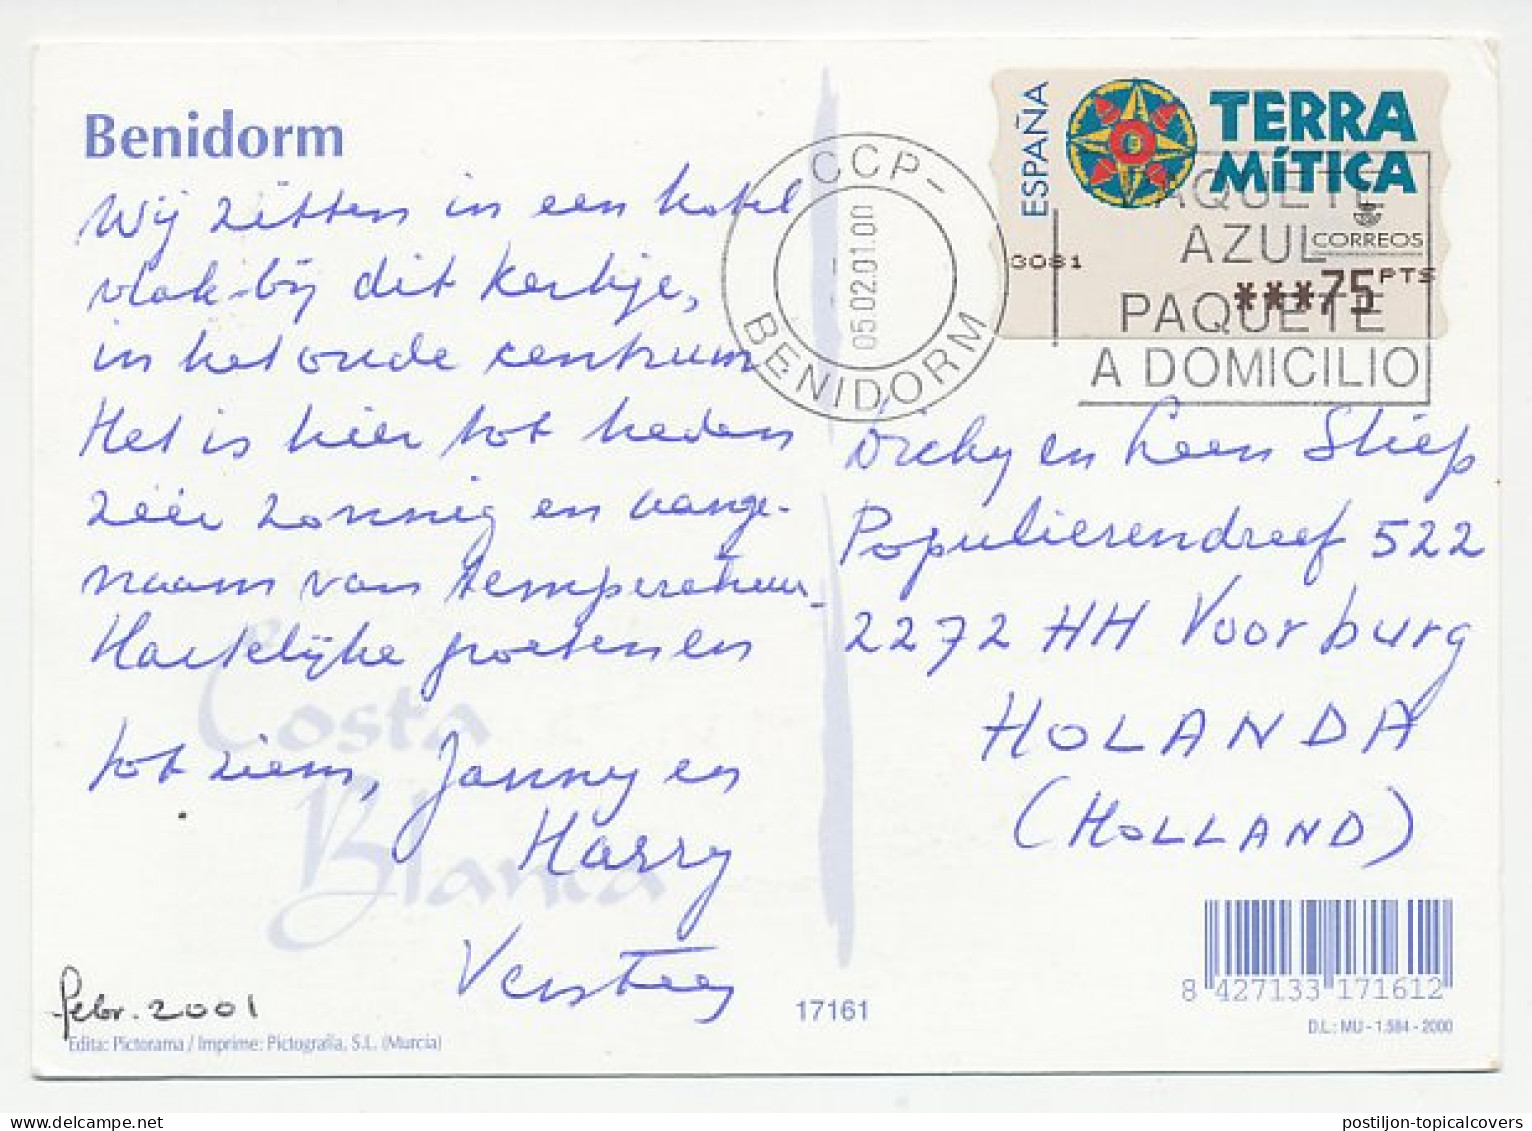 Benidorm
Wij zitten in een hotel
vlak-bij dit kerkje,
in het oude centrum
Het is hier tot heden
zéér zonnig en aange-
naam van temperatuur.
Hartelijke groeten en
tot ziens, Janny en
Harry
Versteeg
febr. 2001
Edita: Pictorama / Imprime: Pictografia, S.L. (Murcia)
Costa
Blanca
17161
CCP-
BENIDORM
05.02.01.00
ESPAÑA
TERRA
MíTICA
CORREOS
3081
***75 PTS
PAQUETE
AZUL
PAQUETE
A DOMICILIO
Dicky en Leen Sliep
Populierendreef 522
2272 HH Voorburg
HOLANDA
(HOLLAND)
8 427133 171612
D.L.: MU - 1.584 - 2000
postiljon-topicalcovers